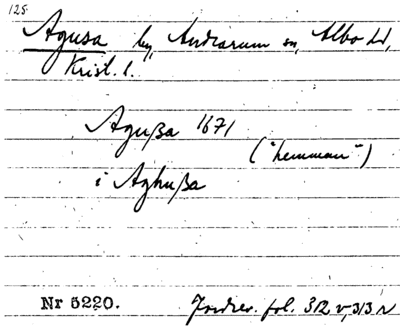 125.
Agusa by, Andrarum sn, Albo hd,
Krist. l.
Aguβa 1671
("hemman")
i Aghuβa
Nr 5220. Jordrev. fol. 312 v, 313 r